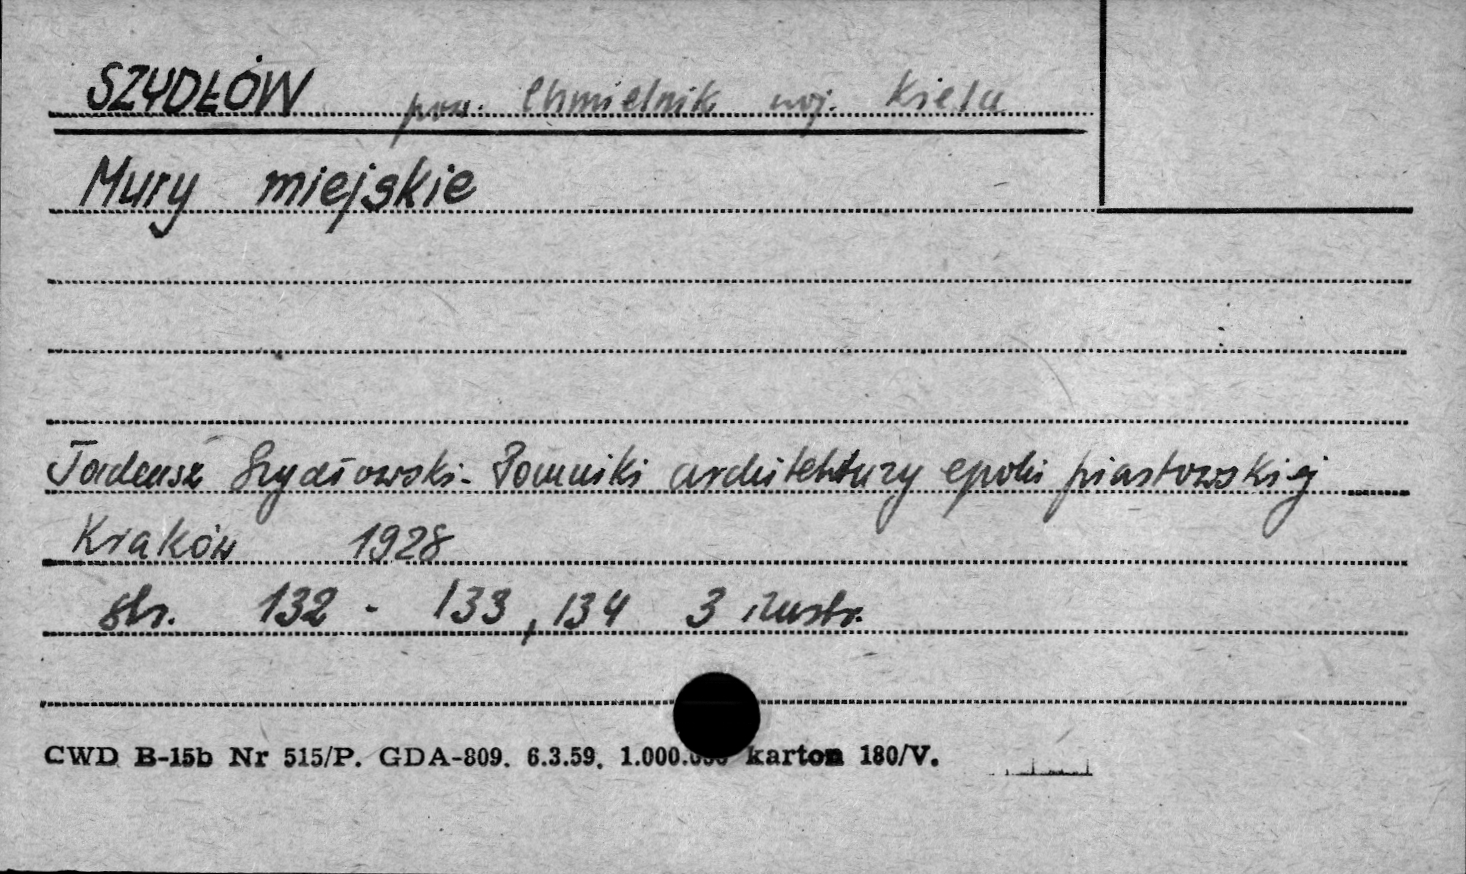 SZYDŁÓW pow. Chmielnik woj. Kielce
Mury miejskie
Tadeusz Szydłowski. Pomniki architektury epoki piastowskiej
Kraków 1928
str. 132 - 133, 134 3 ilustr.
CWD B-15b Nr 515/P. GDA-809. 6.3.59. 1.000.000 karton 180/V.